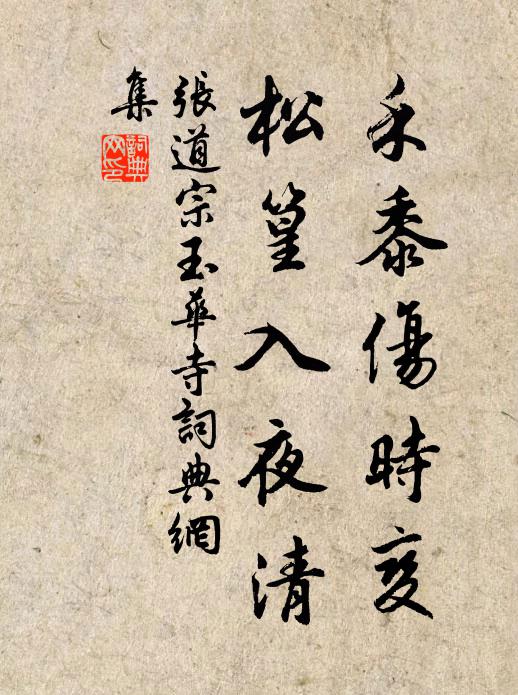 禾黍傷時變
松篁入夜清
張道宗玉華寺詞典網
集
詞典網印